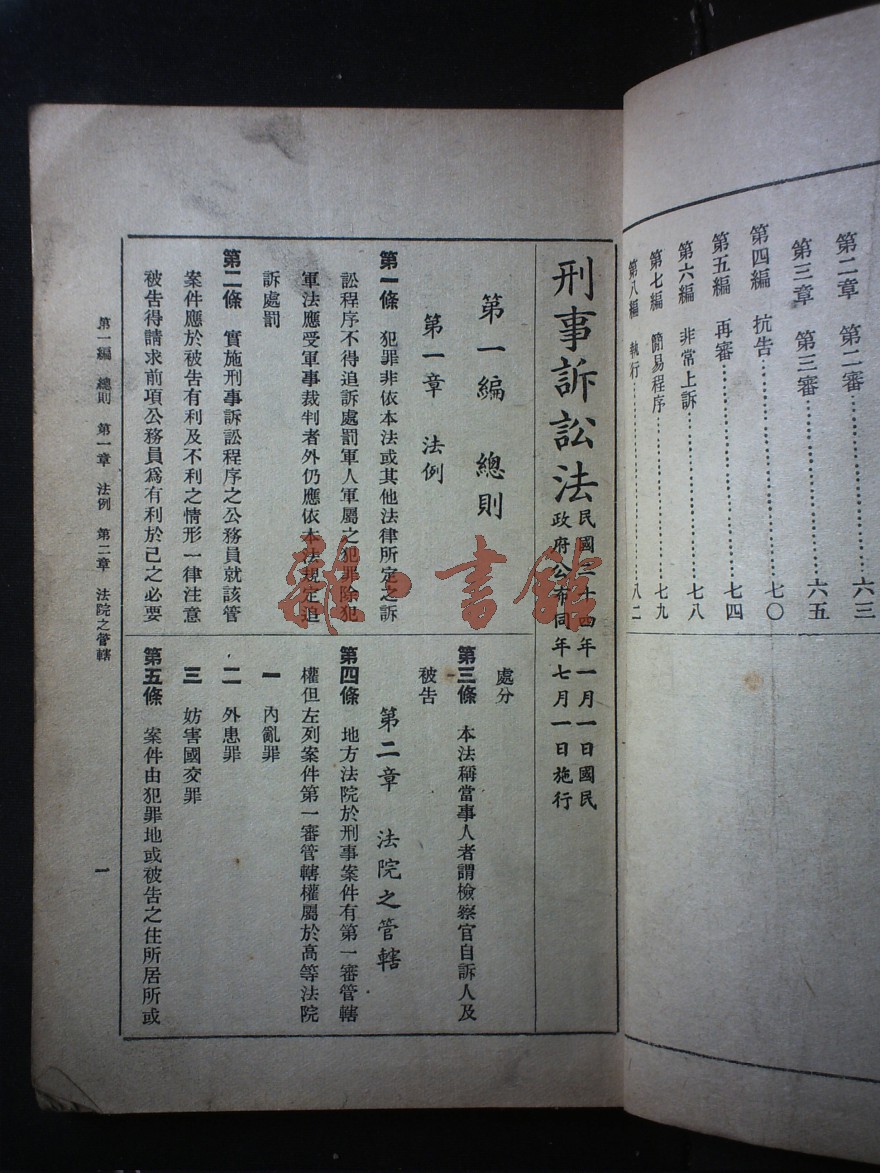 第二章　第二審…………六三
第三章　第三審…………六五
第四編　抗告…………七〇
第五編　再審…………七四
第六編　非常上訴…………七八
第七編　簡易程序…………七九
第八編　執行…………八二
刑事訴訟法
民國二十四年一月一日國民
政府公布同年七月一日施行
第一編　總則
第一章　法例
第一條　犯罪非依本法或其他法律所定之訴
訟程序不得追訴處罰軍人軍屬之犯罪除犯
軍法應受軍事裁判者外仍應依本法規定追
訴處罰
第二條　實施刑事訴訟程序之公務員就該管
案件應於被告有利及不利之情形一律注意
被告得請求前項公務員爲有利於己之必要
處分
第三條　本法稱當事人者謂檢察官自訴人及
被告
第二章　法院之管轄
第四條　地方法院於刑事案件有第一審管轄
權但左列案件第一審管轄權屬於高等法院
一　內亂罪
二　外患罪
三　妨害國交罪
第五條　案件由犯罪地或被告之住所居所或
第一編　總則　第一章　法例　第二章　法院之管轄
一
雜·書館